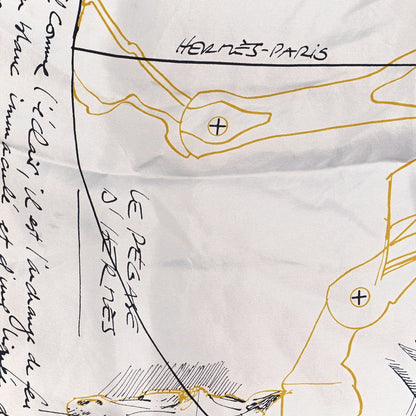 HERMÈS-PARIS
LE PEGASE
D'HERMÈS
Comme l'éclair, il est l'archange de feu
blanc immaculé et d'une